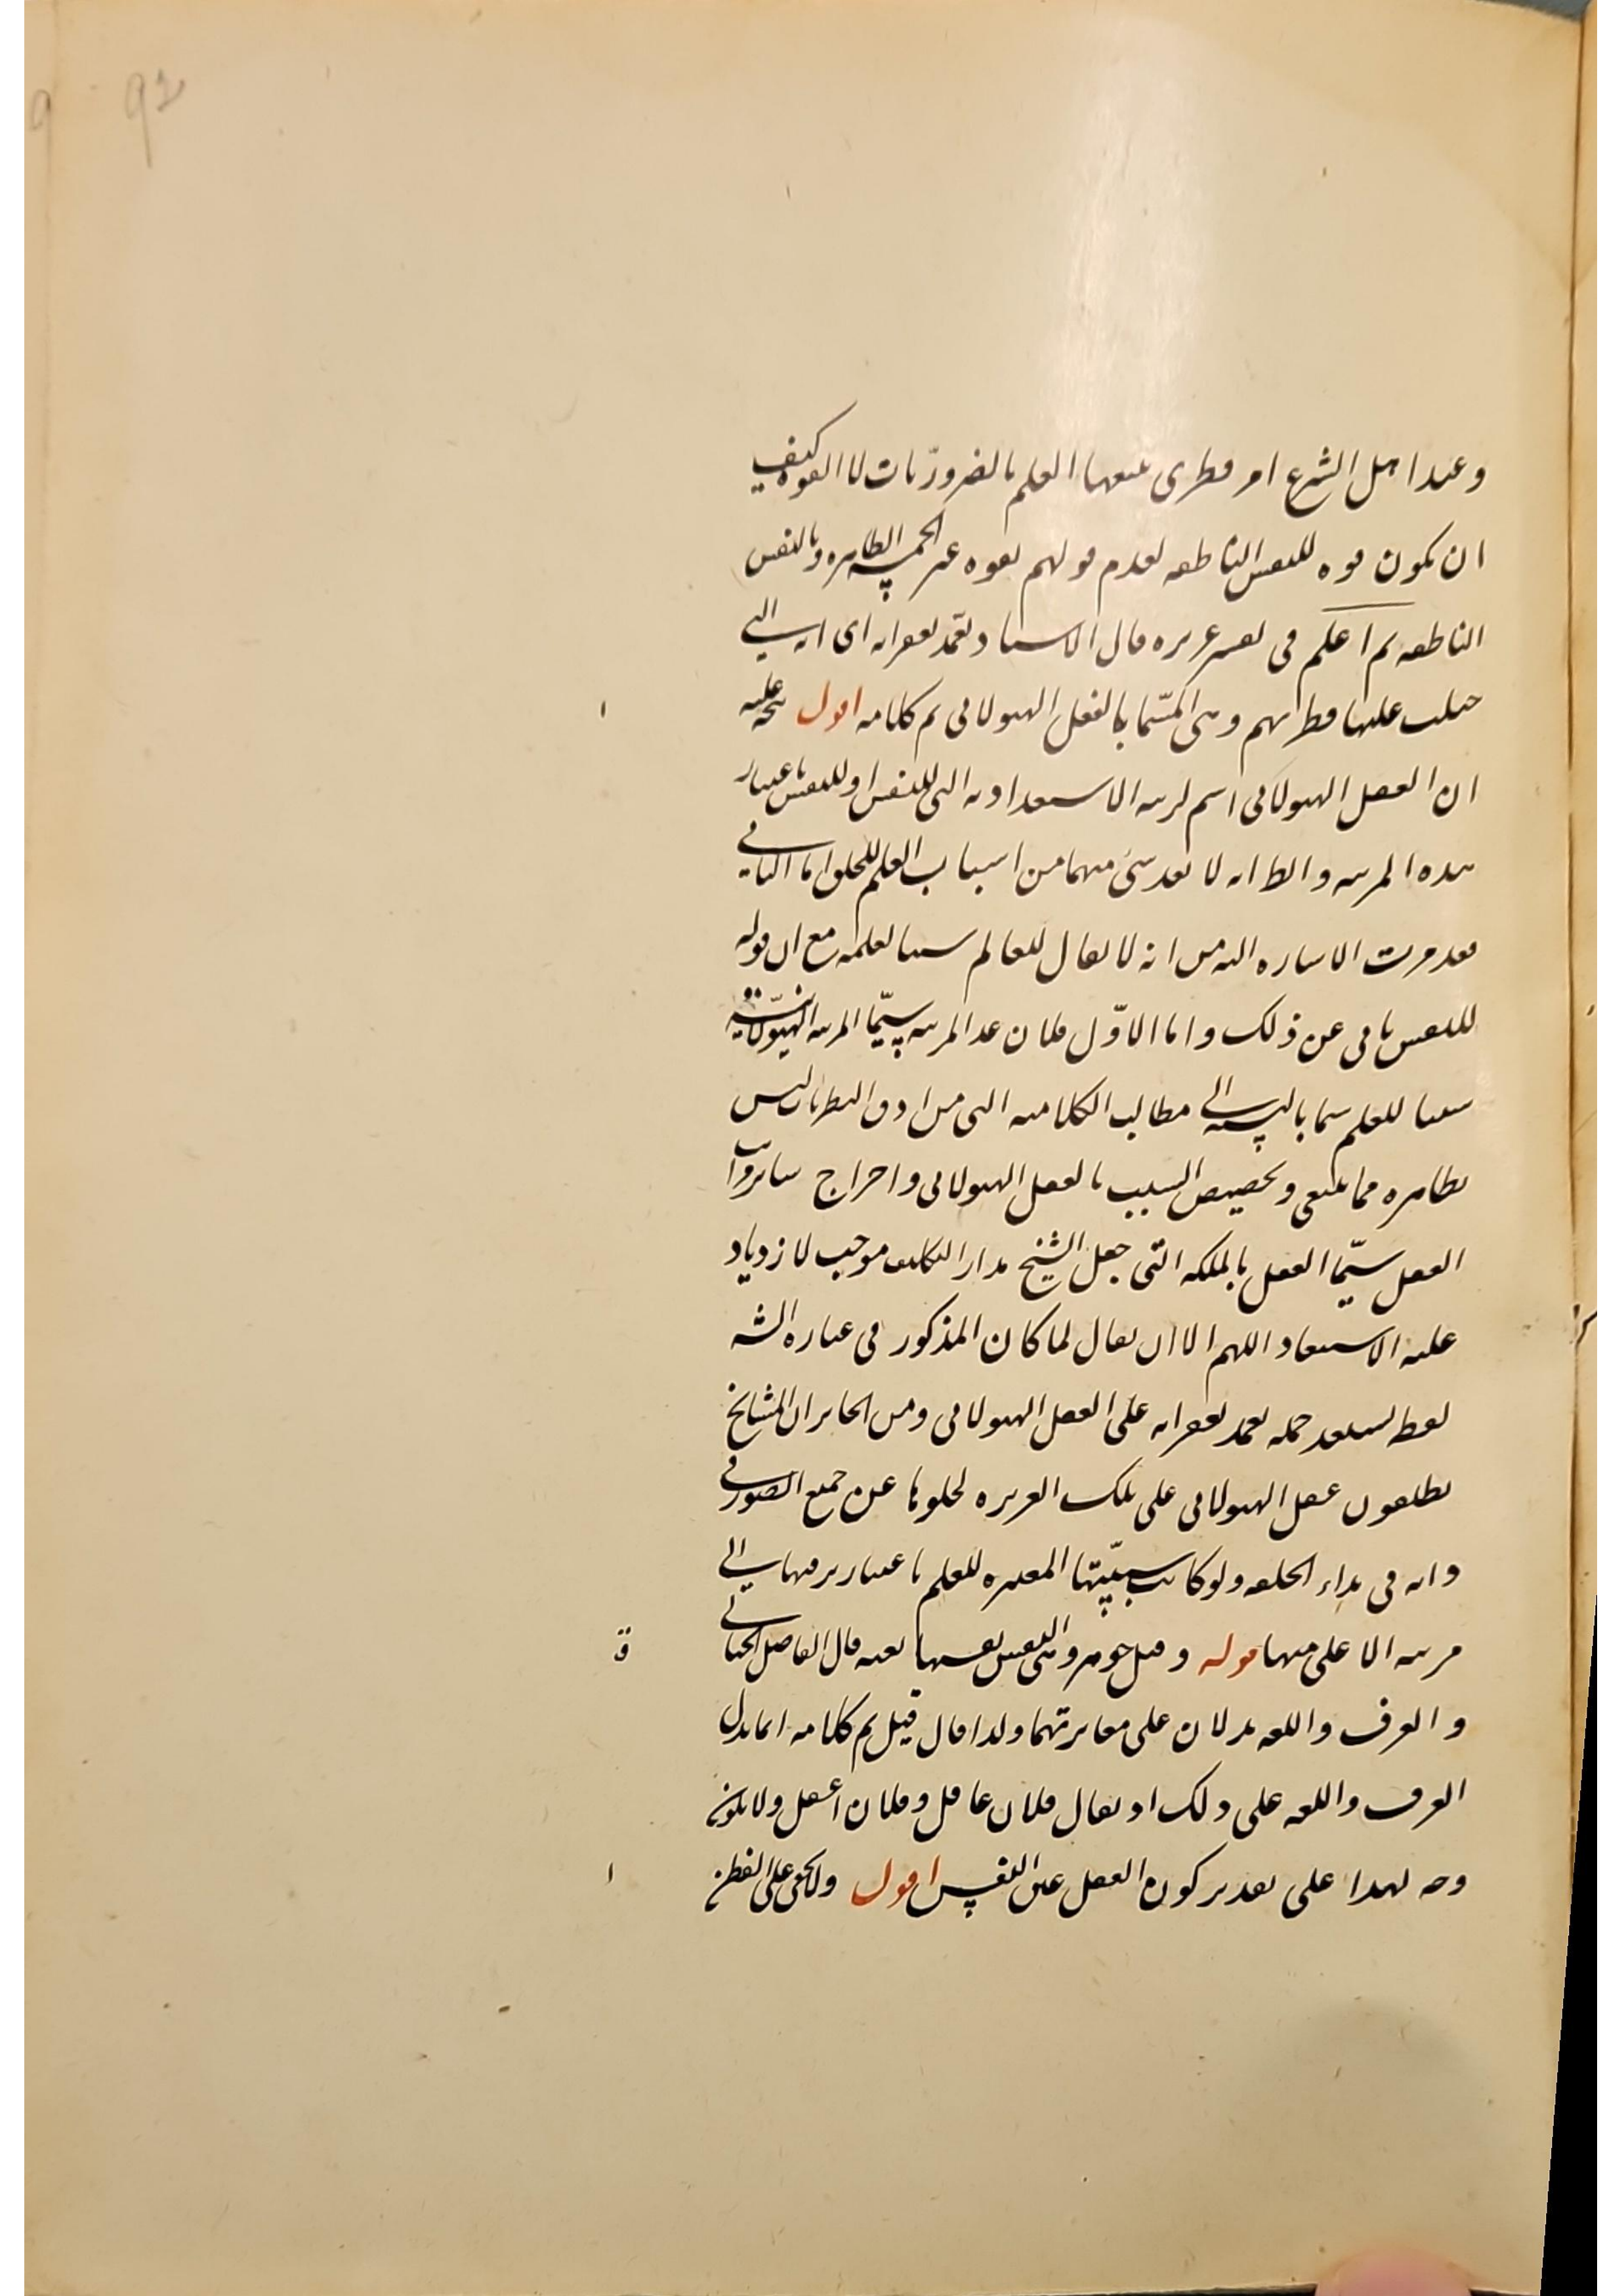 92
وعند اهل الشرع امر فطرى يتبعها العلم بالضروريّات لا القوة كيف
ان يكون قوه للنفس الناطقه لعدم قولهم بقوه عير الخمسه الظاهره وبالنفس
الناطقه ثم اعلم فى تفسير غريزه قال الاستاد تغمّد بغفرانه اى انه التى
جبلت عليها فطرتهم وهى المسمّا بالعقل الهيولانى تم كلامه اقول يتجه عليه
ان العقل الهيولانى اسم لمرتبه الاستعداديه التى للنفس او للنفس باعتبار
هذه المرتبه والظ انه لا يعد شئ منهما من اسباب العلم للخلق اما الثانى
فقد مرت الاشاره اليه من انه لا يقال للعالم سببا لعلمه مع ان قوله
للنفس يابى عن ذلك واما الاوّل فلان عد المرتبه سيّما المرتبه الهيولانيّه
سببا للعلم سيما بالنسبه الى مطالب الكلاميه التى من ادق النظريات ليس
بظاهره مما ينبغى وتخصيص السبب بالعقل الهيولانى واخراج سائر مراتب
العقل سيّما العقل بالملكه التى جعل الشيخ مدار التكليف موجب لازدياد
عليه الاستبعاد اللهم الا ان يقال لما كان المذكور فى عباره الشه
لفظ تستعد حمله تغمد بغفرانه على العقل الهيولانى ومن الجائز ان المشايخ
يطلقون عقل الهيولانى على تلك الغريزه لخلوها عن جميع الصور فى
وانه فى بداء الخلقه ولو كانت سببيّتها المعتبره للعلم باعتبار ترقيها الى
مرتبه الاعلى منها قوله وقيل جوهر وهى النفس بعينها بعينه قال الفاضل الخيالى
ق
والعرف واللغه يدلان على مغايرتهما ولذا قال قيل تم كلامه انما يدل
العرف واللغه على ذلك اذ يقال فلان عاقل وفلان اعقل ولا يكون
وجه لهذا على تقدير كون العقل عين النفس اقول ولا يخفى على الفطن